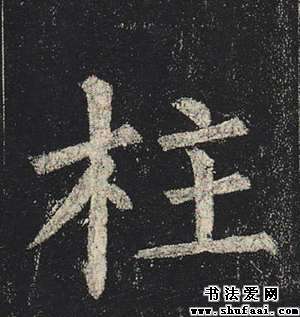 柱
书法爱网
www.shufaai.com